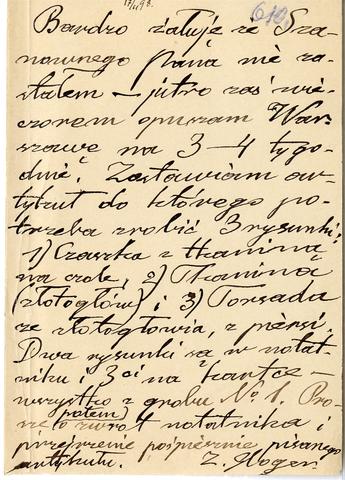 17/II 98.
610.
Bardzo żałuję że Sza-
nownego Pana nie za-
stałem — jutro zaś wie-
czorem opuszam War-
szawę na 3–4 tygo-
dnie. Zostawiam ar-
tykuł do którego po-
trzeba zrobić 3 rysunki:
1) Czaszka z tkaniną
na czole, 2) Tkanina
(złotogłów) i 3) Torsada
ze złotogłowia, z piersi.
Dwa rysunki są w notat-
niku i 3ci na kartce —
wszystko z grobu No 1. Pro-
szę o (potem) zwrot notatnika i
przejrzenie pośpiesznie pisanego
artykułu. Z. Gloger